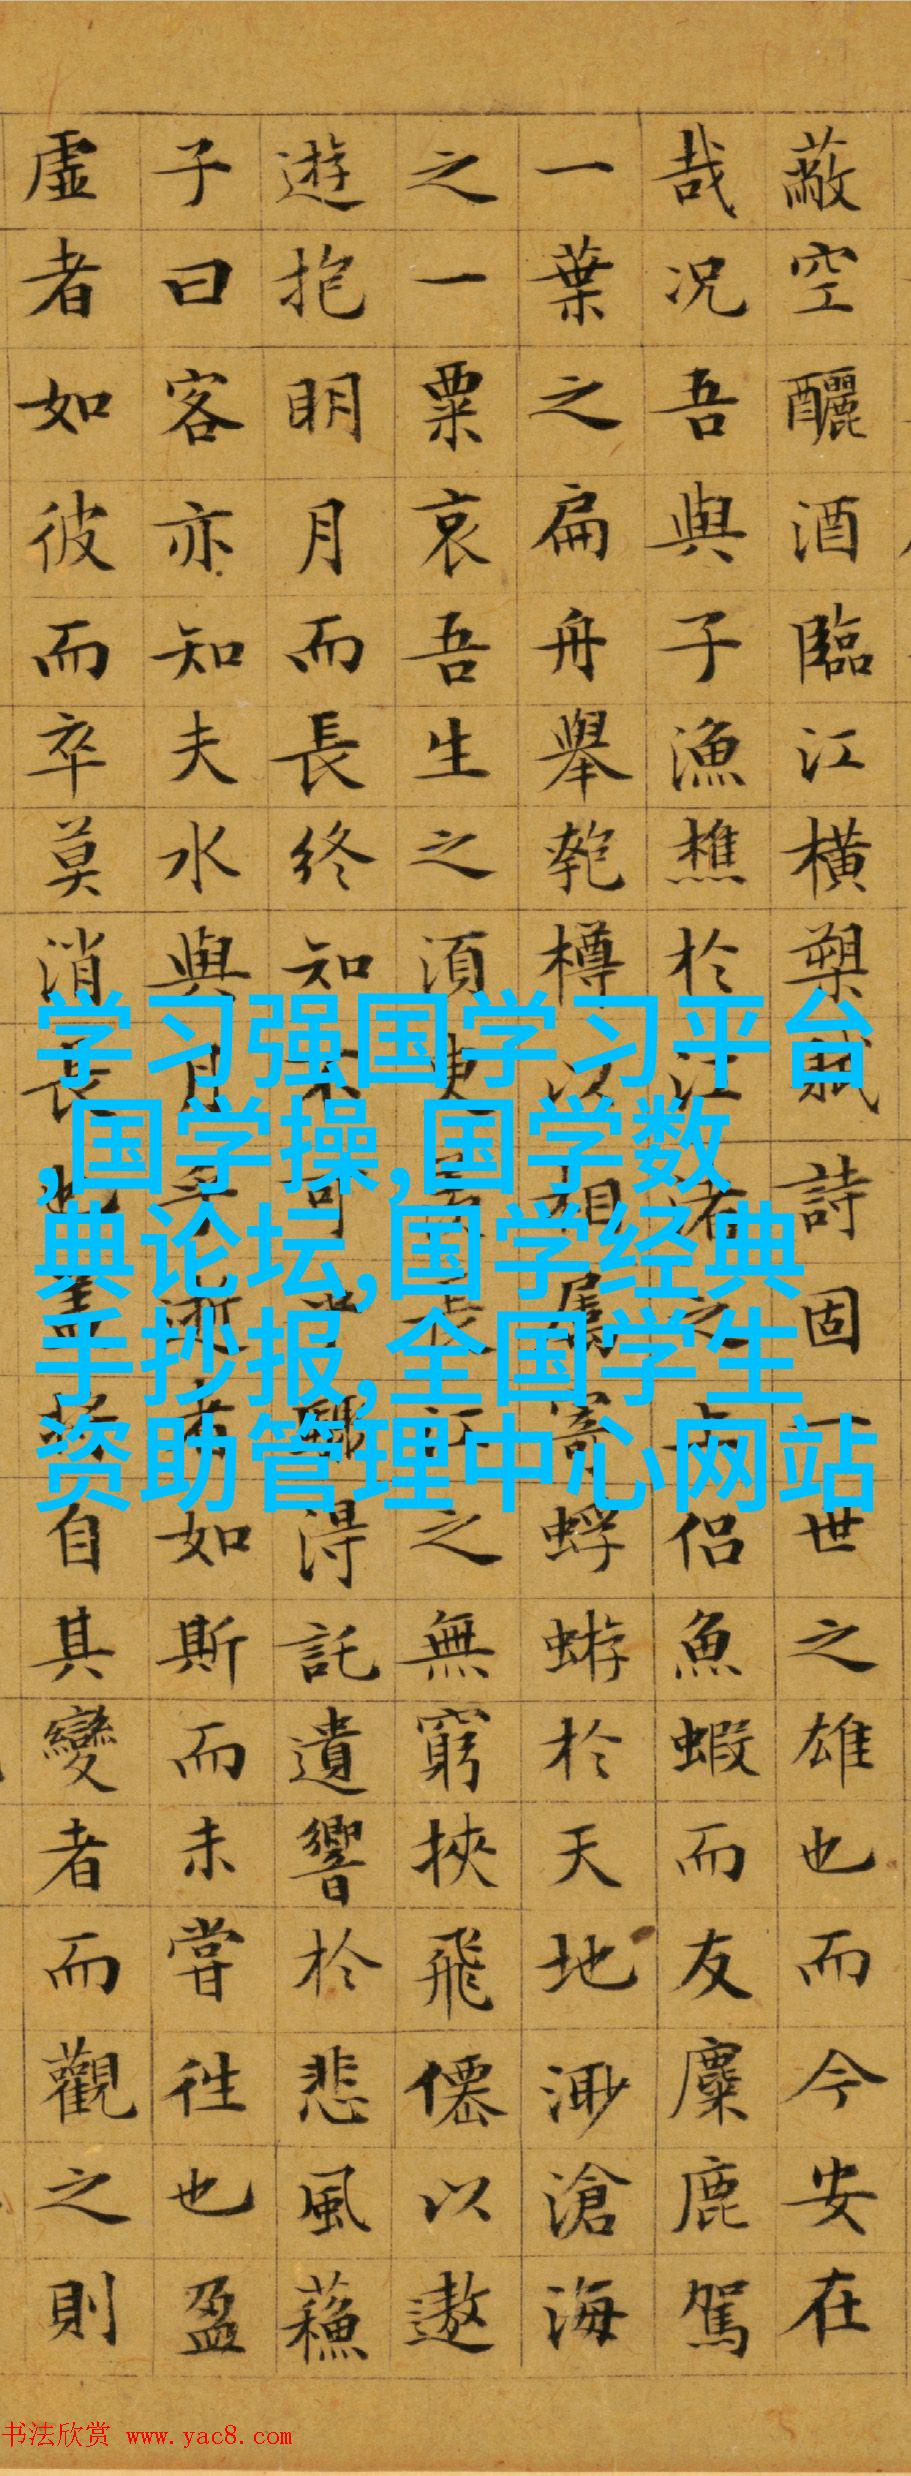 蔽空釃酒臨江橫槊賦詩固一世之雄也而今安在
哉况吾與子漁樵於江渚之上侣魚蝦而友麋鹿駕
一葉之扁舟舉匏樽以相屬寄蜉蝣於天地渺滄海
之一粟哀吾生之須臾長江之無窮挾飛僊以遨
遊抱明月而長終知不可乎驟得託遺響於悲風蘓
子曰客亦知夫水與月乎逝者如斯而未嘗往也盈
虛者如彼而卒莫消長也盖將自其變者而觀之則
学习强国学习平台
,国学操,国学数
典论坛,国学经典
手抄报,全国学生
资助管理中心网站
书法欣赏 www.yac8.com